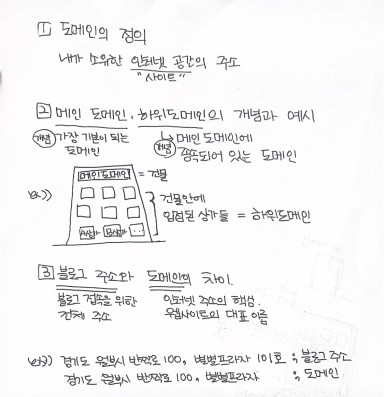 ① 도메인의 정의
내가 소유한 인터넷 공간의 주소
"사이트"
② 메인 도메인, 하위도메인의 개념과 예시
개념 가장 기본이 되는
도메인
↳ 메인 도메인에
개념 종속되어 있는 도메인
메인도메인 = 건물
ex))
A상가 B상가 ...
건물안에
입점된 상가들 = 하위도메인
③ 블로그 주소와 도메인의 차이.
블로그 접속을 위한
전체 주소
인터넷 주소의 핵심.
웹사이트의 대표 이름
ex)) 경기도 월부시 반짝로 100, 별별프라자 101호 ; 블로그 주소
경기도 월부시 반짝로 100, 별별프라자 ; 도메인